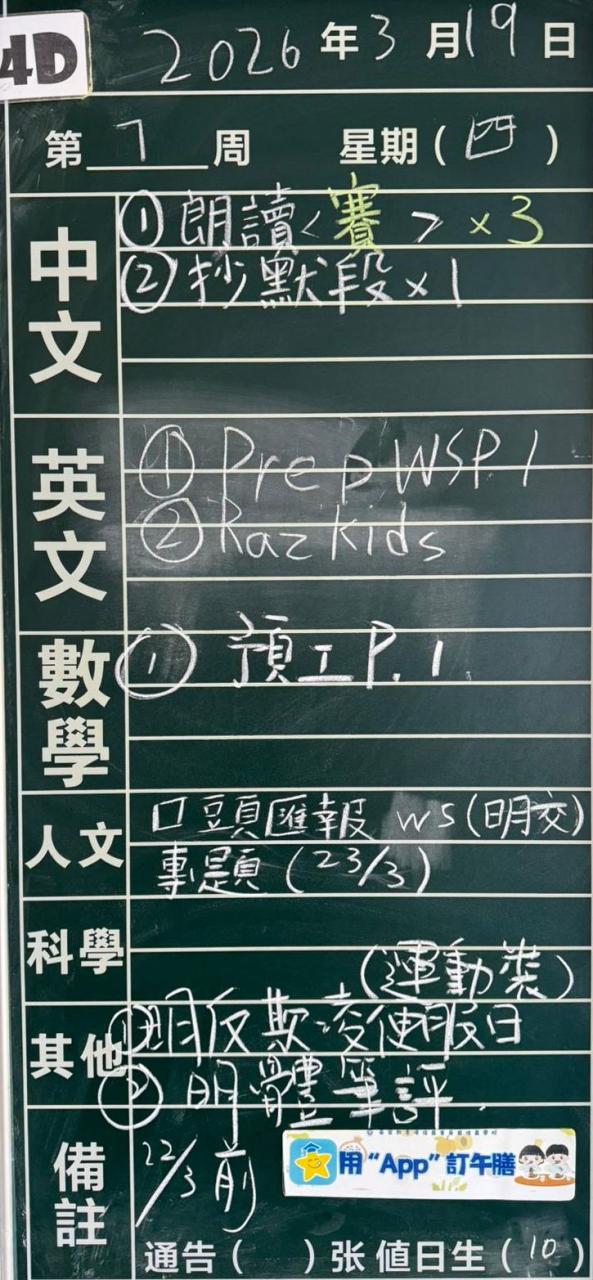 4D
2026年3月19日
第7周 星期(四)
中文
①朗讀<賽>×3
②抄默段×1
英文
①Prep WS P.1
②Raz kids
數學
①預工P.1.
人文
口頭匯報 WS(明交)
專題(23/3)
科學
(運動裝)
其他
①明反欺凌便服日
②明體筆評.
備註
22/3前
用“App”訂午膳
通告( )张 值日生(10)